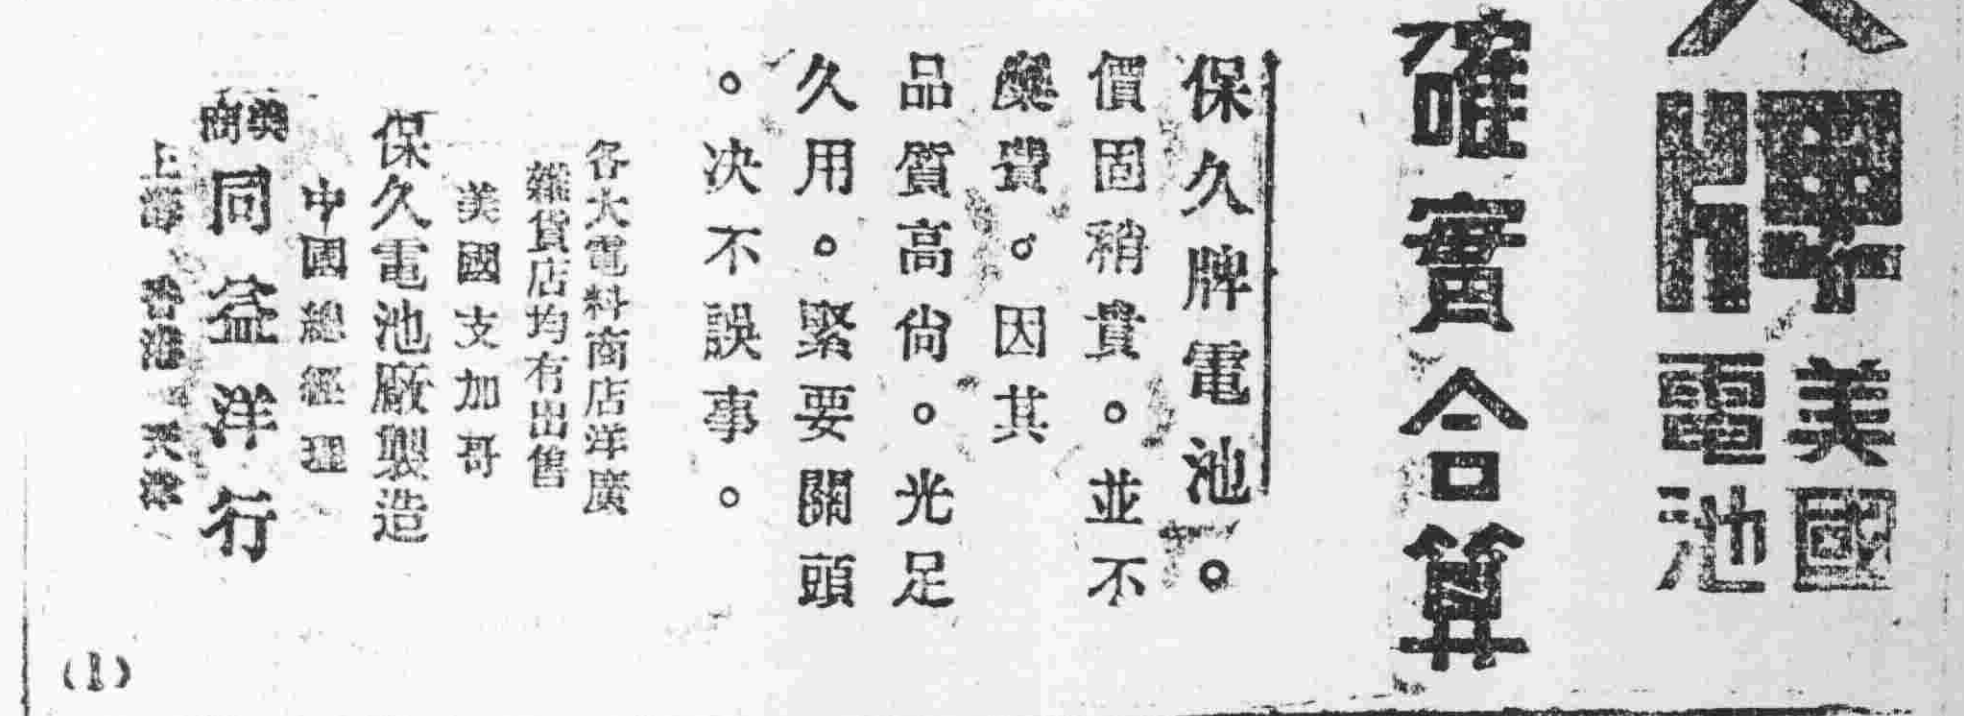 久牌
美國
電池
確實合算
保久牌電池。
價固稍貴。並不
糜費。因其
品質高尙。光足
久用。緊要關頭
。决不誤事。
各大電料商店洋廣
雜貨店均有出售
美國支加哥
保久電池廠製造
中國總經理
美商
同益洋行
上海 香港 天津
(1)